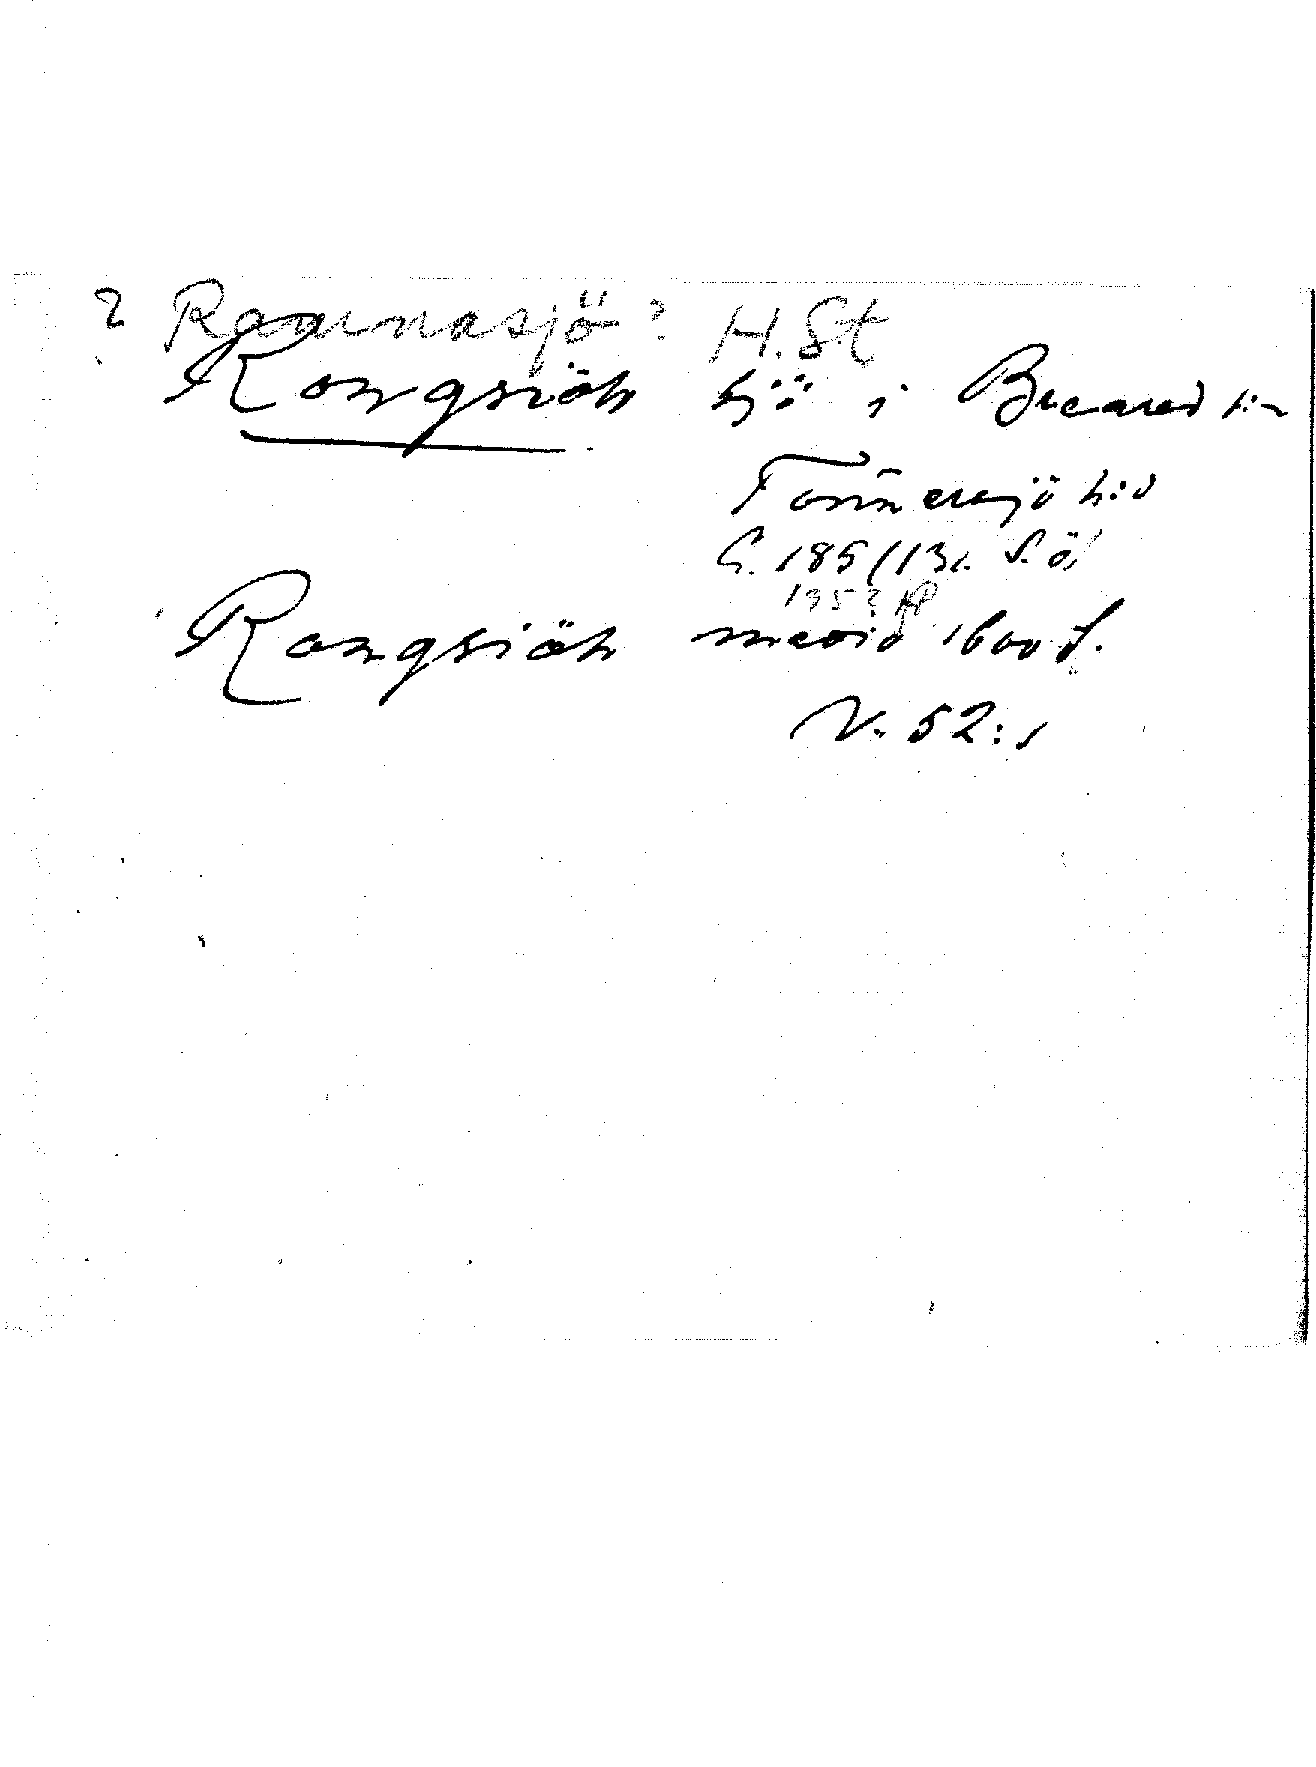 ? Raamnasjö ? H. St
Rongsiöh sjö i Breared s:n
Tönnersjö h:d
G. 185 (131. S. ö)
1353
Rongsiöh medio 1600 t.
N. 52:1